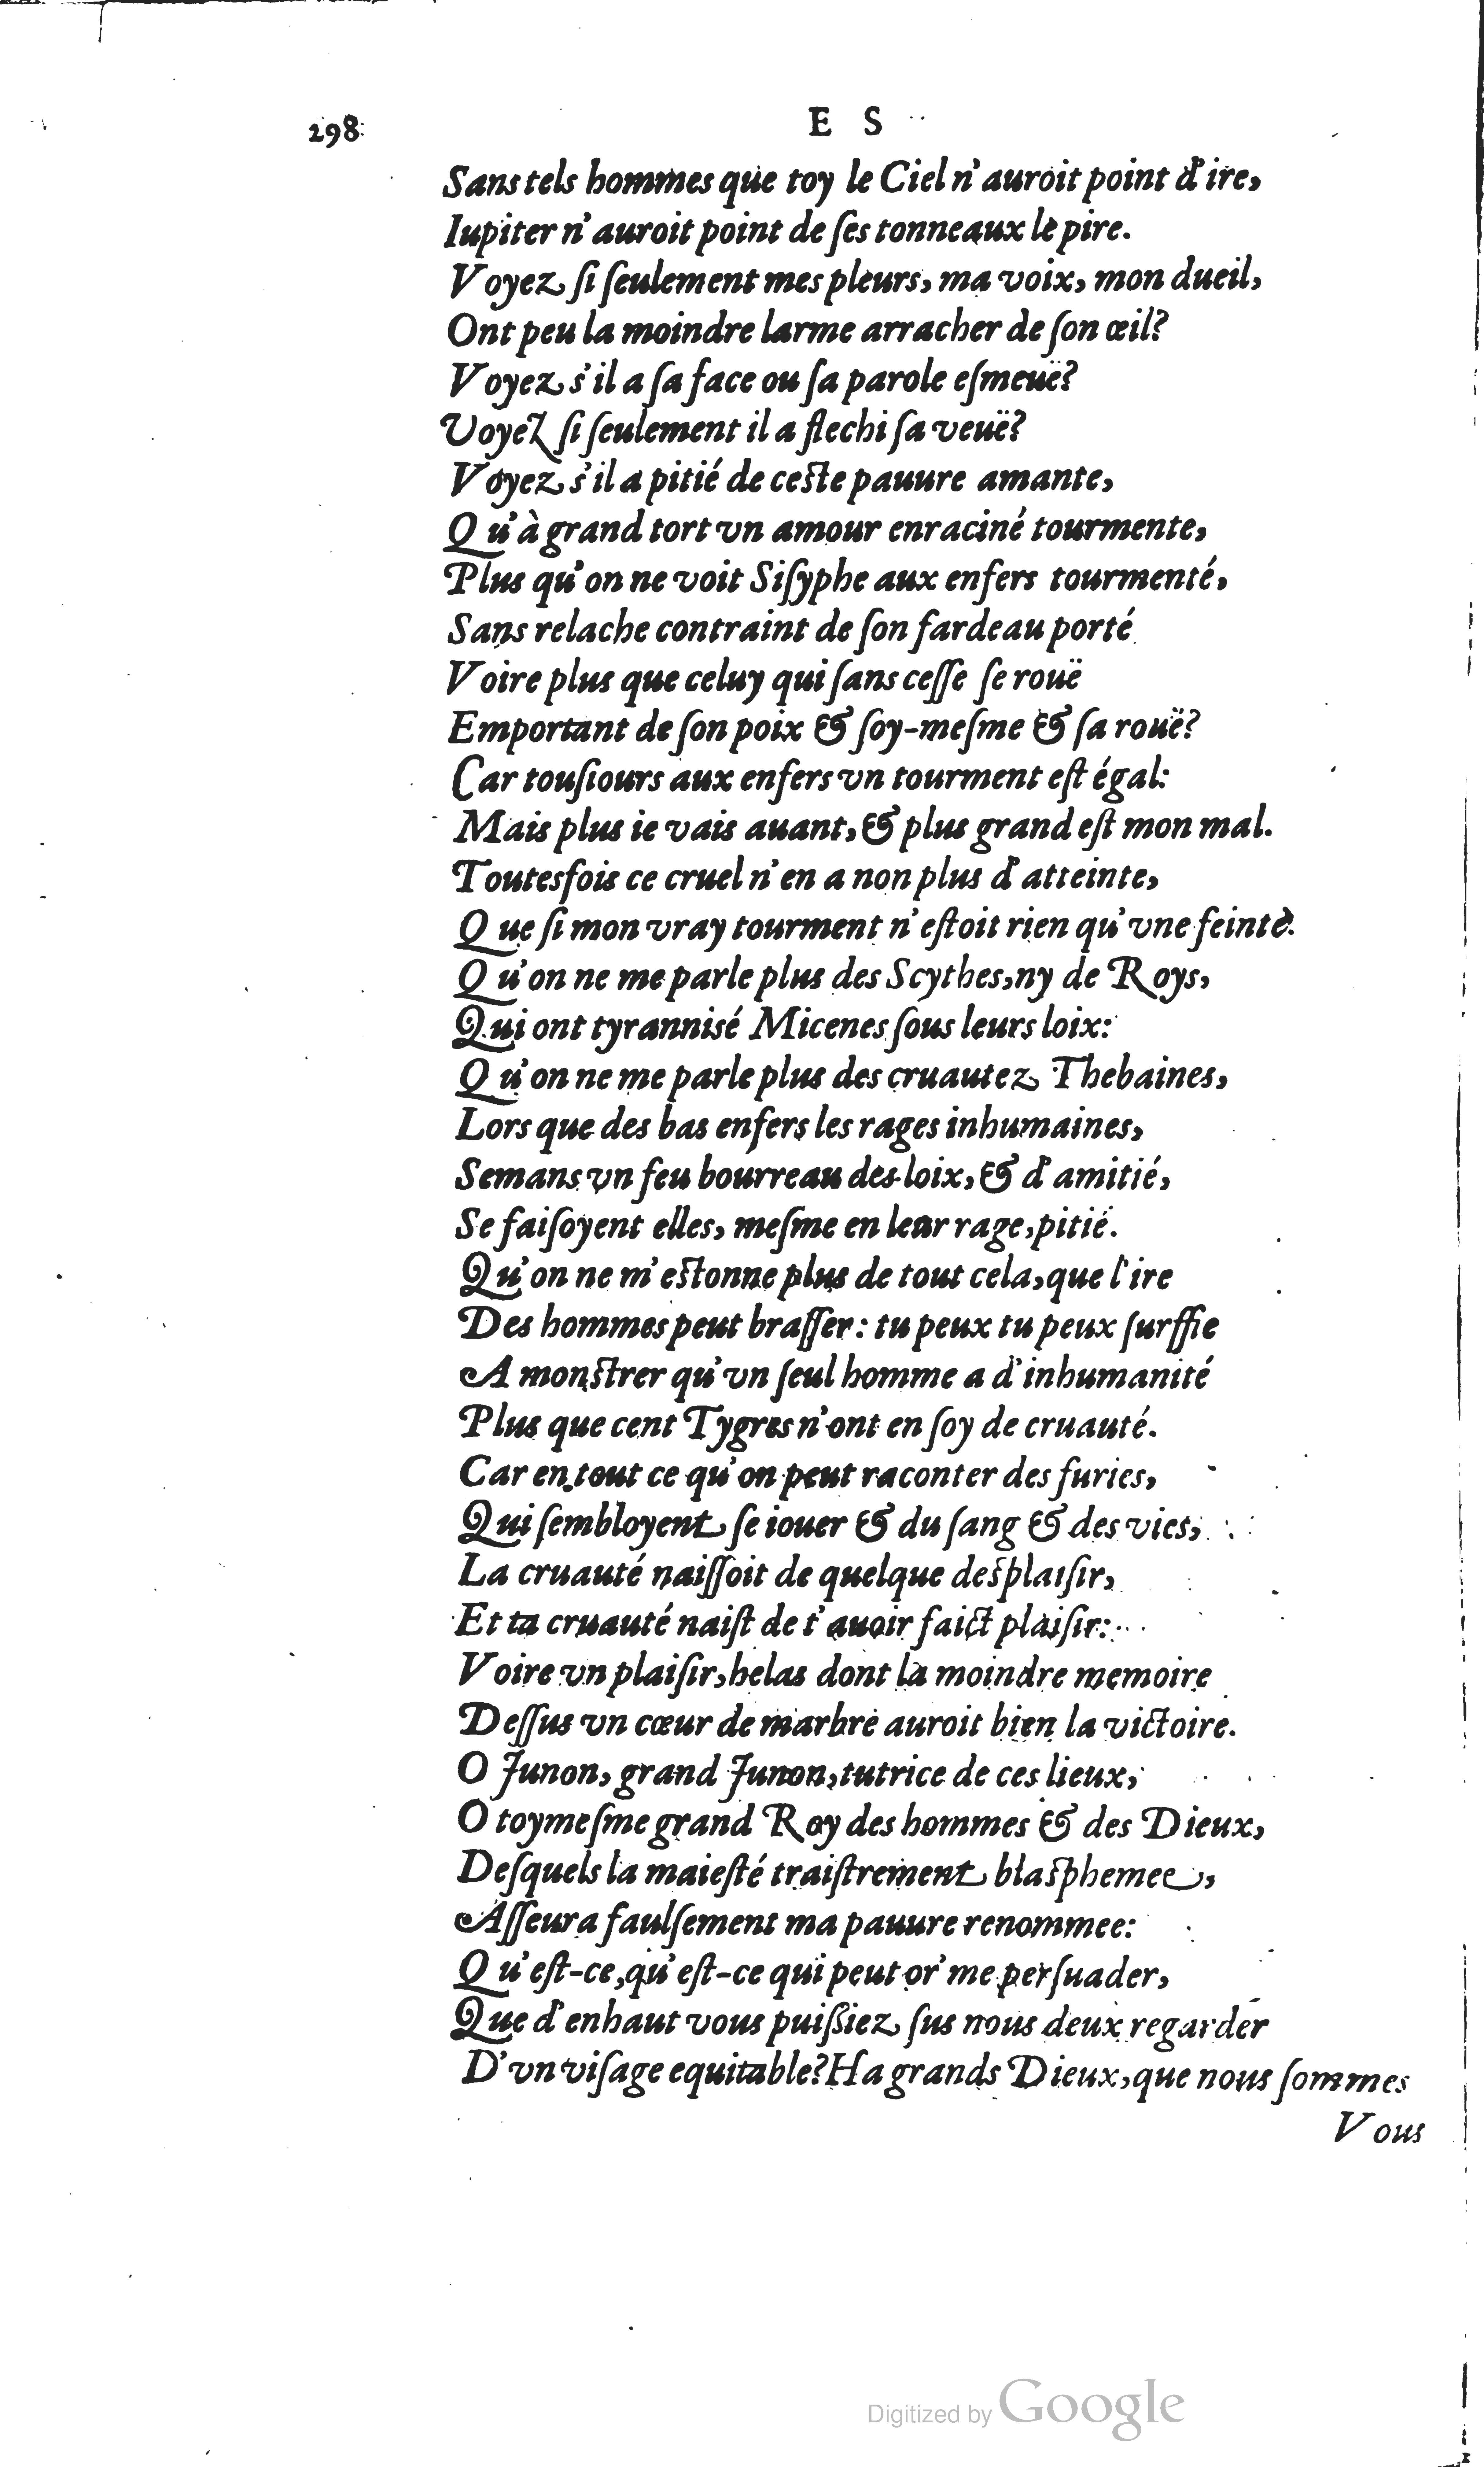 298 E S
Sans tels hommes que toy le Ciel n'auroit point d'ire,
Iupiter n'auroit point de ſes tonneaux le pire.
Voyez ſi ſeulement mes pleurs, ma voix, mon dueil,
Ont peu la moindre larme arracher de ſon œil?
Voyez s'il a ſa face ou ſa parole eſmeuë?
Voyez ſi ſeulement il a flechi ſa veuë?
Voyez s'il a pitié de ceſte pauure amante,
Qu'à grand tort vn amour enraciné tourmente,
Plus qu'on ne voit Siſyphe aux enfers tourmenté,
Sans relache contraint de ſon fardeau porté
Voire plus que celuy qui ſans ceſſe ſe rouë
Emportant de ſon poix & ſoy-meſme & ſa rouë?
Car touſiours aux enfers vn tourment eſt égal:
Mais plus ie vais auant, & plus grand eſt mon mal.
Toutesfois ce cruel n'en a non plus d'atteinte,
Que ſi mon vray tourment n'eſtoit rien qu'vne feinte.
Qu'on ne me parle plus des Scythes, ny de Roys,
Qui ont tyrannisé Micenes ſous leurs loix:
Qu'on ne me parle plus des cruautez Thebaines,
Lors que des bas enfers les rages inhumaines,
Semans vn feu bourreau des loix, & d'amitié,
Se faiſoyent elles, meſme en leur rage, pitié.
Qu'on ne m'eſtonne plus de tout cela, que l'ire
Des hommes peut braſſer: tu peux tu peux ſurffie
A monſtrer qu'vn ſeul homme a d'inhumanité
Plus que cent Tygres n'ont en ſoy de cruauté.
Car en tout ce qu'on peut raconter des furies,
Qui ſembloyent ſe iouer & du ſang & des vies,
La cruauté naiſſoit de quelque deſplaiſir,
Et ta cruauté naiſt de t'auoir faict plaiſir:
Voire vn plaiſir, helas dont la moindre memoire
Deſſus vn cœur de marbre auroit bien la victoire.
O Junon, grand Junon, tutrice de ces lieux,
O toymeſme grand Roy des hommes & des Dieux,
Deſquels la maieſté traiſtrement blaſphemee,
Aſſeura faulſement ma pauure renommee:
Qu'eſt-ce, qu'eſt-ce qui peut or' me perſuader,
Que d'enhaut vous puiſſiez ſus nous deux regarder
D'vn viſage equitable? Ha grands Dieux, que nous ſommes
Vous
Digitized by Google